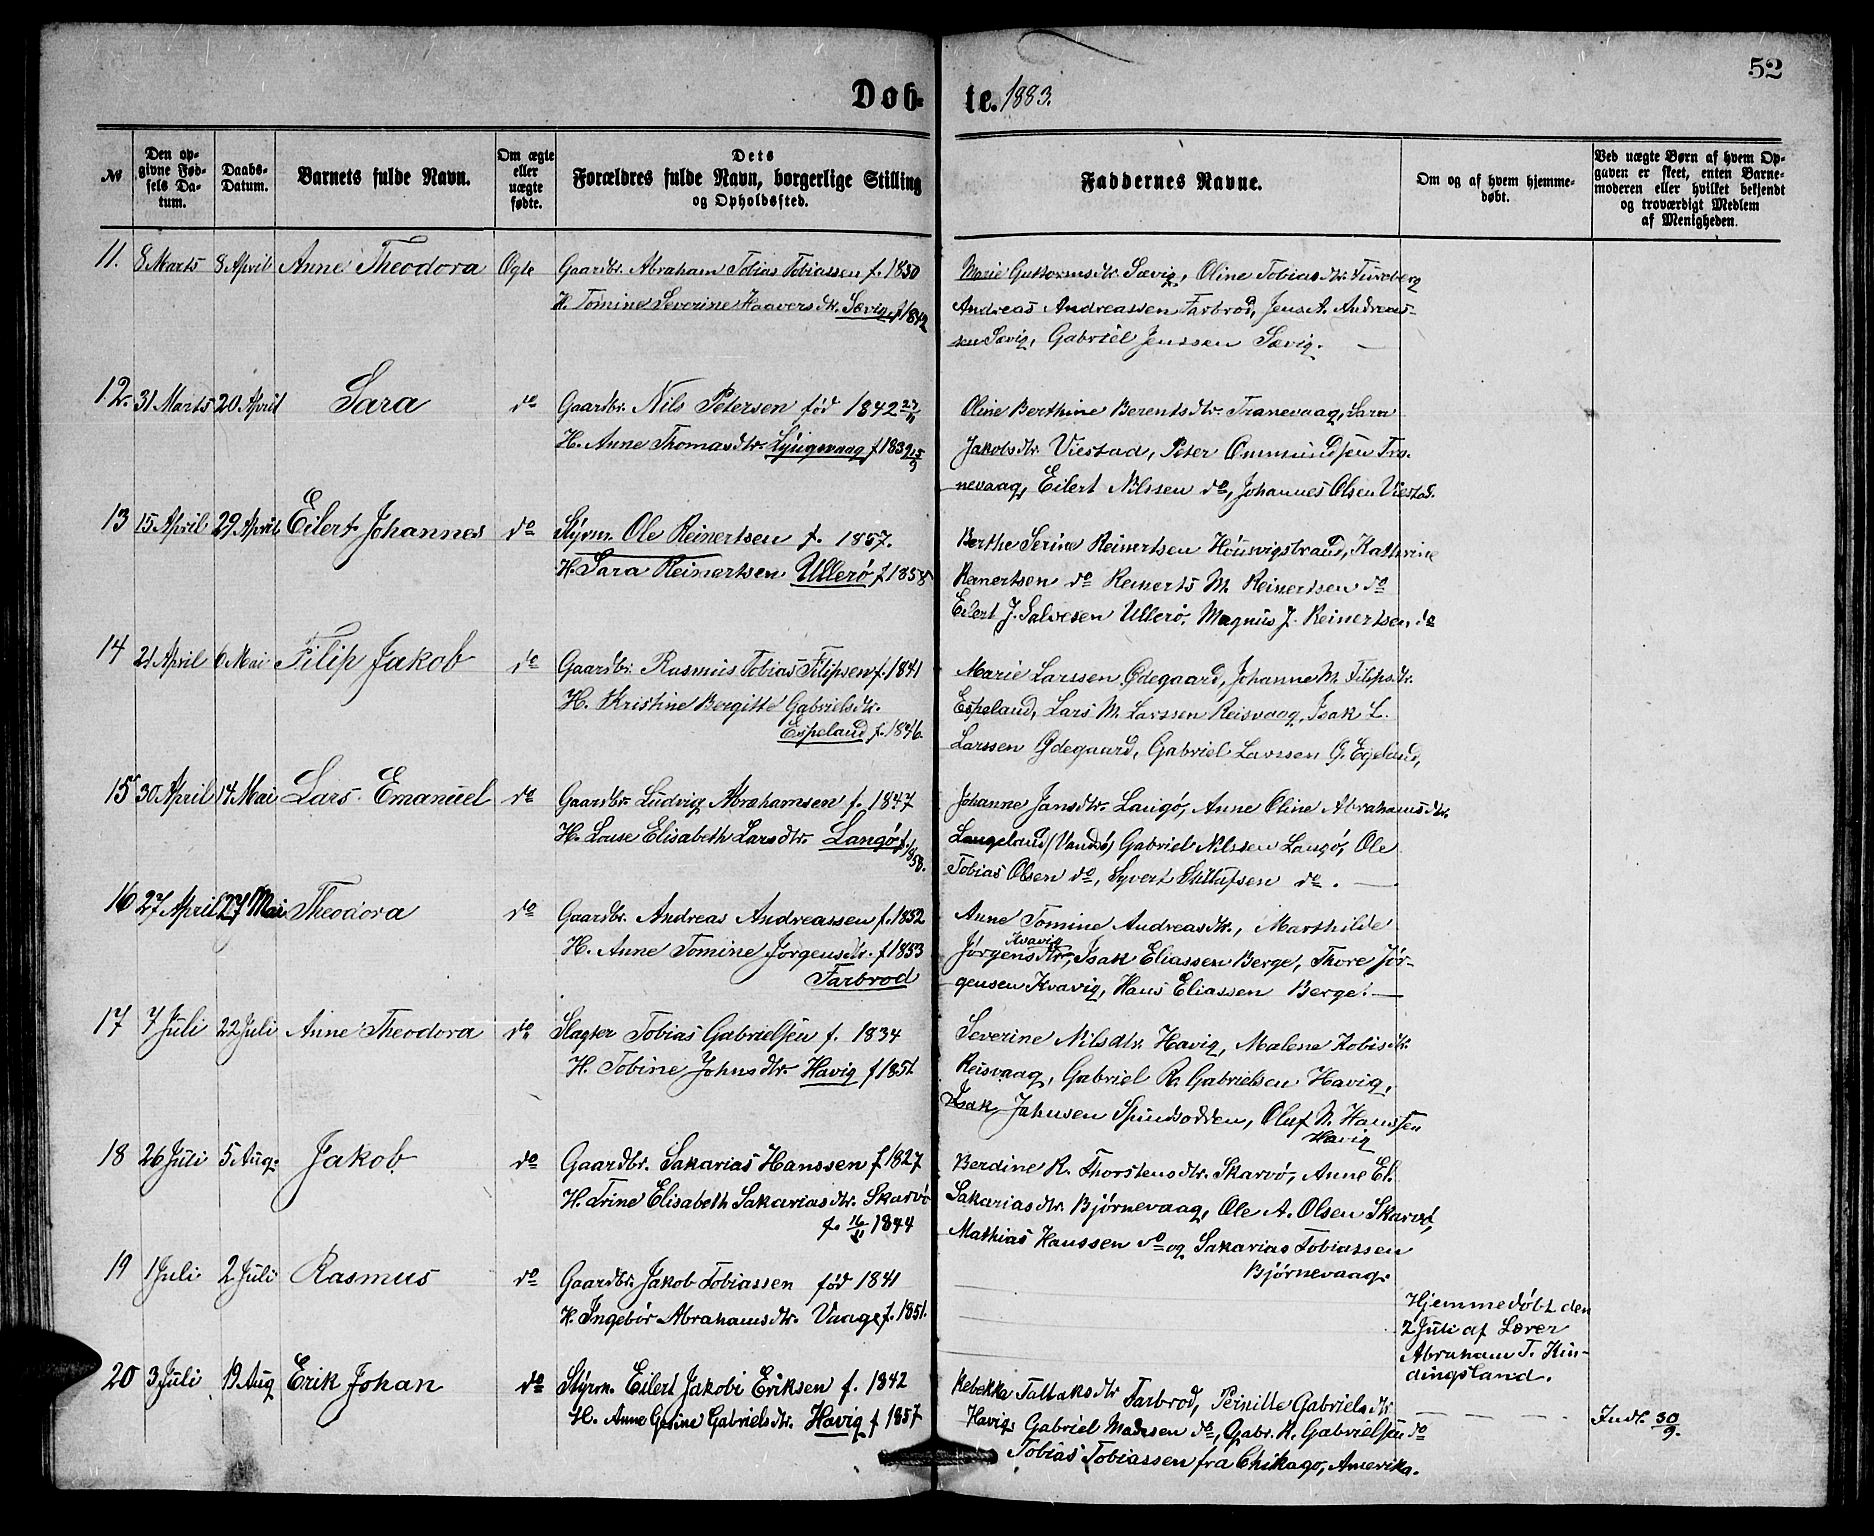 52
Døb- te. 1883.
№
Den opgivne Fødsels Datum.
Daabs-Datum.
Barnets fulde Navn.
Om ægte eller uægte fødte.
Dets Forældres fulde Navn, borgerlige Stilling og Opholdssted.
Faddernes Navne.
Om og af hvem hjemmedøbt.
Ved uægte Børn af hvem Opgaven er skeet, enten Barnemoderen eller hvilket bekjendt og troværdigt Medlem af Menigheden.
11. 8 Marts 8 April Anne Theodora Ægte
Gaardbr. Abraham Tobias Tobiassen f. 1850
H. Tomine Severine Haaversdtr. Sævig f 1842
Marie Guttormsdtr. Sævig, Oline Tobiasdtr.
Andreas Andreassen Farbrod, Jens A. Andreas-
sen Sævig, Gabriel Jenssen Sævig. —
12. 31 Marts 20 April Sara do
Gaardbr. Nils Petersen fød 1842 27/11
H. Anne Thomasdtr. Lyngsvaag f 1839 15/9
Oline Berthine Berentsdtr. Tranevaag, Sara
Jakobsdtr. Viestad, Peter Ommundsen Tra-
nevaag, Eilert Nilssen do, Johannes Olsen Viestad.
13 15 April 29 April Eilert Johannes do
Styrm. Ole Reinertsen f. 1857.
H. Sara Reinertsen Ullerø f 1858
Berthe Serine Reinertsen Hounvigstrand, Kathrine
Reinertsen do Reinerts M. Reinertsen do
Eilert J. Salvesen Ullerø, Magnus J. Reinertsen do
14 21 April 6 Mai Filip Jakob do
Gaardbr. Rasmus Tobias Filipsen f. 1841
H. Kristine Bergitte Gabrielsdtr.
Espeland f. 1846.
Marie Larssen Ødegaard, Johanne M. Filipsdtr.
Espeland, Lars M. Larssen Reisvaag, Isak L.
Larssen Ødegaard, Gabriel Larssen G. Egeland,
15 30 April 14 Mai Lars Emanuel do
Gaardbr. Ludvig Abrahamsen f. 1847
H. Louise Elisabeth Larsdtr. Langø f. 1858.
Johanne Jansdtr. Langø, Anne Oline Abrahamsdtr.
Langeland (Vandsø) Gabriel Nilssen Langø, Ole
Tobias Olsen do, Syvert do. —
16 27 April 27 Mai Theodora do
Gaardbr. Andreas Andreassen f. 1852
H. Anne Tomine Jørgensdtr. f 1853
Farbrod
Anne Tomine Andreasdtr., Marthilde
Kvavig
Jørgensdtr, Isak Eliassen Berge, Thore Jør-
gensen Kvavig, Hans Eliassen Berge. —
17 7 Juli 22 Juli Anne Theodora do
Slagter Tobias Gabrielsen f. 1834
H. Tobine Johnsdtr. Havig f 1851
Severine Nilsdtr. Havig, Malene
Reisvaag, Gabriel R. Gabrielsen Havig,
Isak Jahnsen Spindsodden, Oluf N. Hanssen
Havig
18 26 Juli 5 Aug. Jakob do
Gaardbr. Sakarias Hanssen f 1827
H. Trine Elisabeth Sakariasdtr. Skarvø
f. 16/11 1844
Berdine R. Thorstensdtr. Skarvø, Anne El.
Sakariasdtr. Bjørnevaag, Ole A. Olsen Skarvø,
Mathias Hanssen do og Sakarias Tobiassen
Bjørnevaag.
19 1 Juli 2 Juli Rasmus do
Gaardbr. Jakob Tobiassen fød 1841
H. Ingebør Abrahamsdtr. Vaage f. 1851.
Hjemmedøbt den
2 Juli af Lærer
Abraham T. Hin-
dingsland.
20 3 Juli 19 Aug Erik Johan do
Styrm. Eilert Jakobi Eriksen f. 1842
H. Anne Gesine Gabrielsdtr. Havig f 1857
Rebekka Taltaksdtr Farbrod, Pernille Gabrielsdtr
Havig, Gabriel Madsen do, Gabr. R. Gabrielsen do
Tobias Tobiassen fra Chikago, Amerika.
Indt. 30/9.